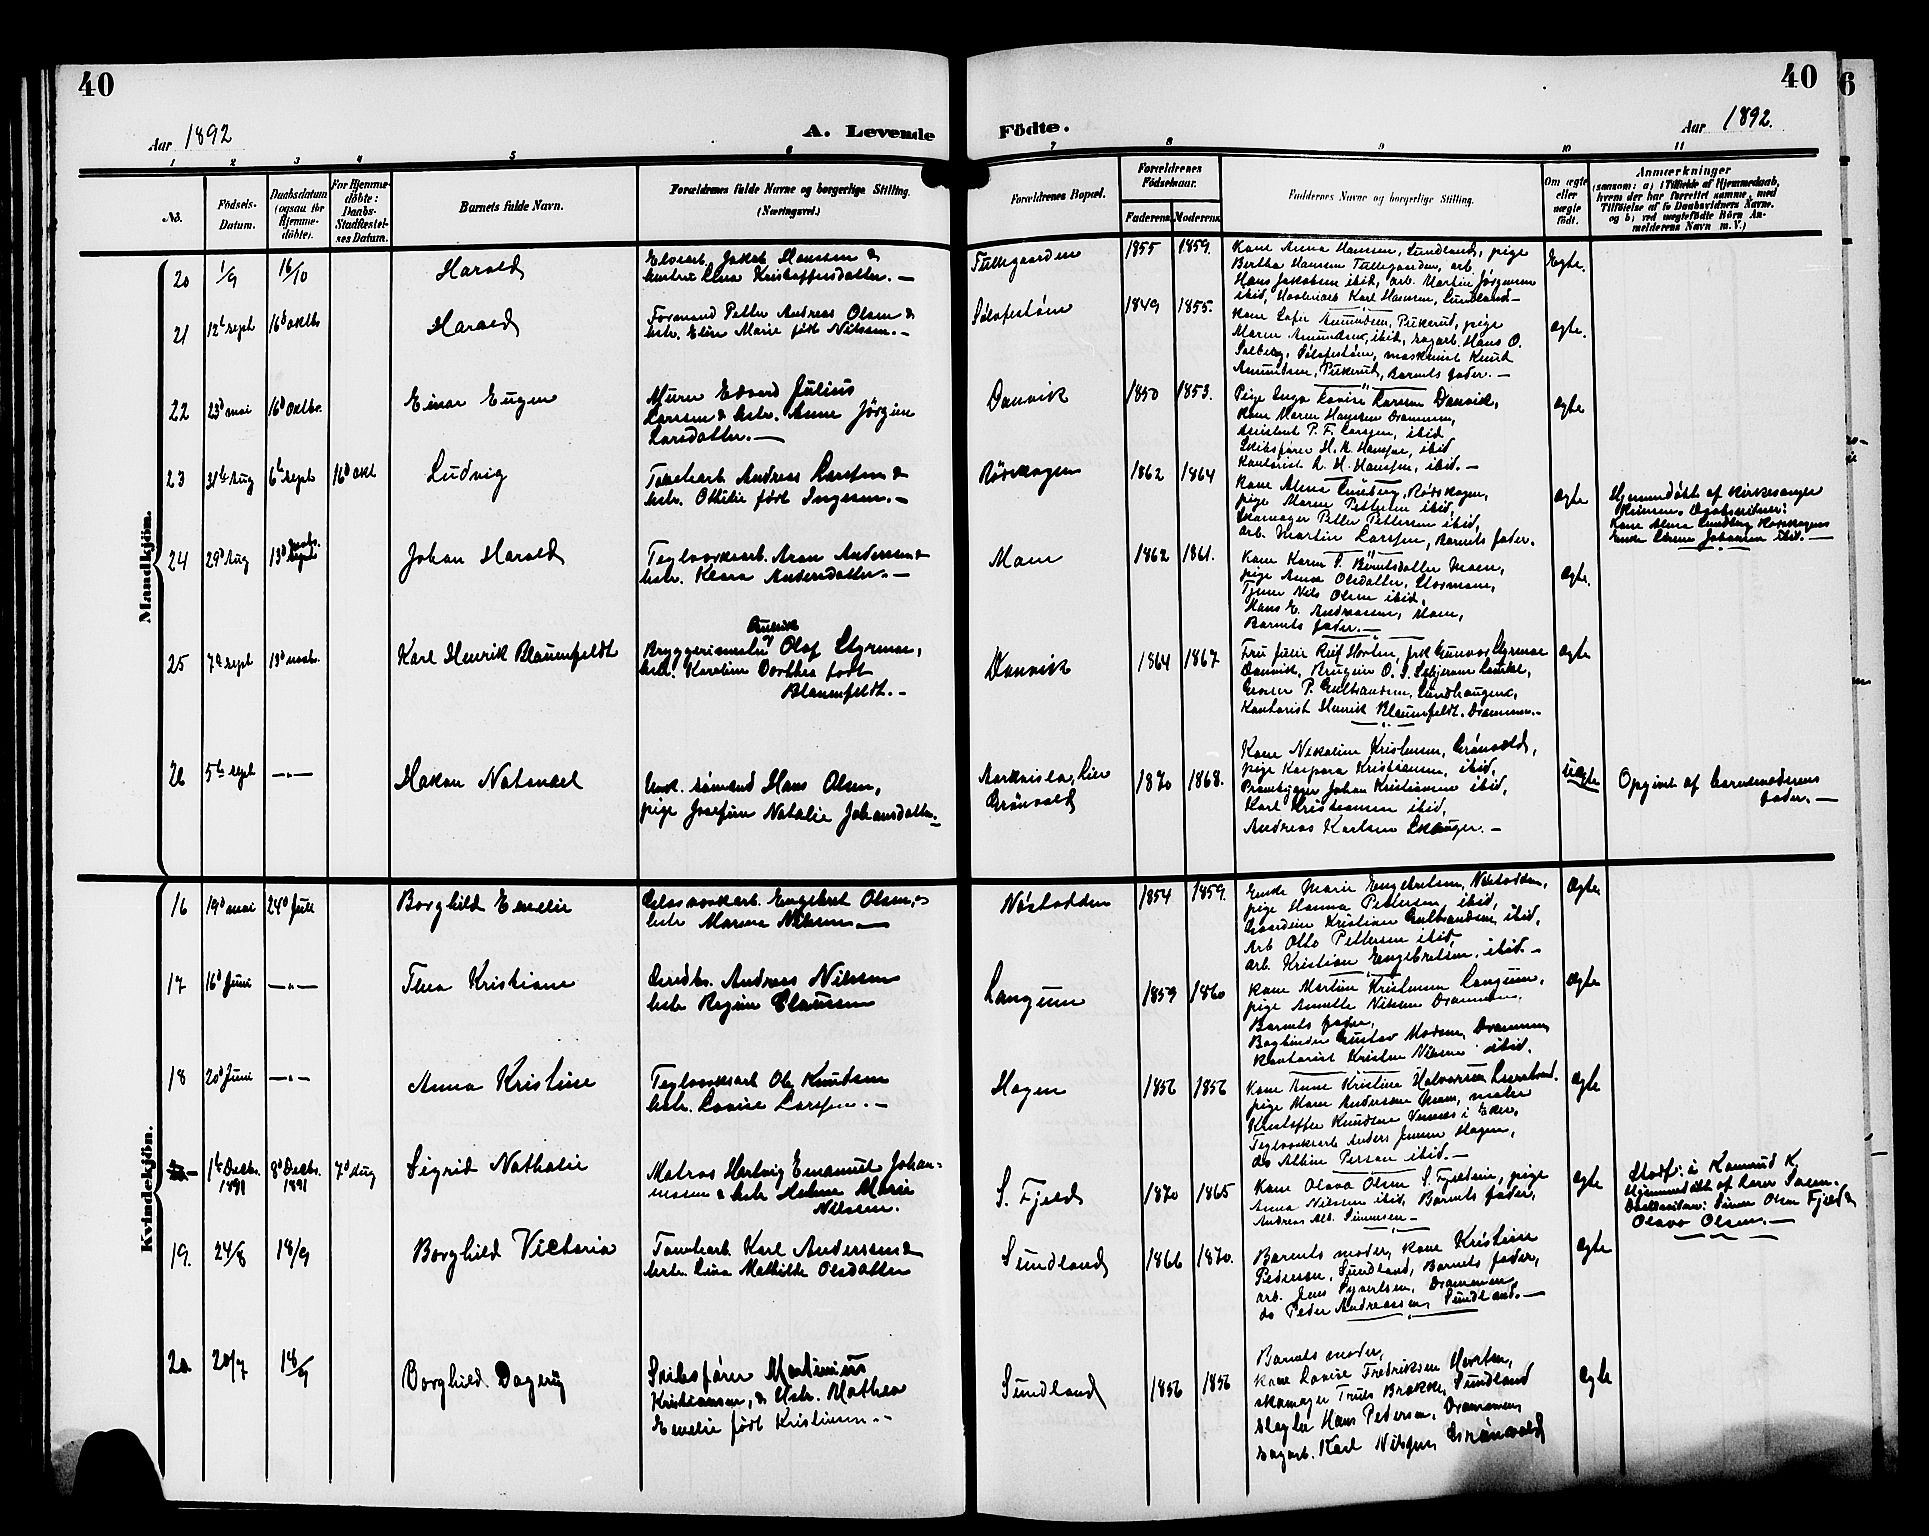 40
40
6
Aar 1892
A. Levende
Födte.
Aar 1892.
1 2 3 4 5 6 7 8 9 10 11
No.
Födsels-
Datum.
Daabsdatum
(ogsaa for
Hjemme-
döbte).
For Hjemme-
döbte:
Daabs-
Stadfæstel-
ses Datum.
Barnets fulde Navn.
Forældrenes fulde Navne og borgerlige Stilling.
(Næringsvei.)
Forældrenes Bopæl.
Forældrenes
Födselsaar.
Faderens. Moderens.
Faddernes Navne og borgerlige Stilling.
Om ægte
eller
uægte
födt.
Anmærkninger
(saasom: a) i Tilfælde af Hjemmedaab,
hvem der har forrettet samme, med
Tilföielse af to Daabsvidners Navne,
og b) ved uægtefödte Börn An-
melderens Navn m. V.)
Mandkjön.
20 1/9 16/10 Harald
Elvearb. Jakob Hansen &
hustru Lina Kristoffersdatter. —
Tullegaarden 1855 1859.
Kone Anna Hansen, Sundland, pige
Bertha Hansen Tullegaarden, arb.
Hans Jakobsen ibid, arb. Martin Jørgensen
ibid, Karl Hansen, Sundland —
Egte.
21 12te sept 16d oktb. Harald
Formand Petter Andreas Olsen &
hstr. Elise Marie født Nilsen. —
Sølfastøen 1849 1855.
Kone Sofie Amundsen, Pukerud, pige
Maren Amundsen, ibid, sagarb. Hans O.
Solberg, maskinist Knut
Amundsen, Pukerud, Barnets fader. —
Ægte.
22 23d mai 16d oktbr. Einar Eugen
Murer Edvard Julius
Larsen & hstr. Anne Jörgine
Larsdatter. —
Danvik 1850 1853.
Pige Inga Lovise Larsen Danvik,
Kone Maren Hansen Drammen,
Assistent P. F. Larsen, ibid
Skibsfører H. K. Hansen, ibid
Kontorist L. H. Hansen, ibid. —
Ægte
23 31te Aug 6te sept 16d okt Ludvig
Tomtearb. Andreas Larsen &
hstr. Othilie født Ingesen. —
Rødskogen 1862 1864
Kone Alma Lundberg, Rødskogen,
pige Maren Pettersen ibid,
skomager Petter Pettersen ibid,
arb. Martin Larsen, Barnets fader.
Ægte
Hjemmedøbt af kirkesanger
Daabsvidner:
Kone Alma Lundberg Rødskogen
Enke Johansen ibid. —
24 29d Aug 13d Johan Harald
Teglværksarb. Aron Andersen &
hstr. Klara Andersdatter. —
Moen 1862 1861.
Kone Karen P. Berntsdatter Moen,
pige Anna Olsdatter, Stormoen,
Tjener Nils Olsen ibid,
Hans E. Andreassen, Moen,
Barnets fader. —
Ægte.
25 7de sept 13d novb. Karl Henrik Blauenfeldt
Bryggerimester Olaf Styrmoe,
hstr. Karoline Dorthea født
Blauenfeldt. —
Danvik 1864 1867
Fru Julie Reif Horten, frk Gunvor Styrmoe
Danvik,
Grosser P. Gulbrandsen, Sundhaugene,
Kontorist Henrik Blauenfeldt, Drammen. —
Ægte
26 5te sept —"— Hakon Natanael
Unk. sømand Hans Olsen,
pige Josefine Natalie Johansdatter. —
Lier
Grønvold
1870 1868.
Kone Nikoline Kristensen, Grønvold,
pige Kaspara Kristiansen, ibid,
Prambygger Johan Kristiansen ibid,
Karl Kristiansen ibid,
Andreas Karlsen Skanger. —
uægte
Opgivet af barnemoderens
fader. —
Kvindekjön.
16 19d mai 24d Juli Borghild Emelie
Glasværkarb. Engebret Olsen, &
hstr Marna Nilsen —
Nøstodden 1854 1859.
Enke Marie Engebretsen, Nøstodden,
pige Hanna Pettersen ibid,
Gaardeier Kristian Gulbrandsen, ibid,
Arb Otto Pettersen ibid,
arb. Kristian Engebretsen, ibid. —
Ægte
17 16d Juni —"— Thea Kristiane
Andreas Nilsen
hstr Regine Claussen
Langum 1859 1860
Kone Martine Kristensen Langum,
pige Annette Nilsen Drammen.
Barnets fader,
Bogbinder Gustav Madsen, Drammen
Kontorist Kristen Nilsen ibid.
Ægte
18 20d Juni —"— Anna Kristine
Teglværksarb Ole Knudsen
hstr. Lovise Larsen. —
Hagen 1856 1856
Kone Anne Kristine Halvorsen
pige Maren Andersen Moen, maler
Kristoffer Knudsen i Eker,
Teglværksarb Anders Jensen Hagen,
do Albin Person ibid. —
Ægte
1te Decbr. 1891 8d Decbr. 1891 7d Aug Sigrid Nathalie
Matros Hartvig Emanuel Johan-
nessen & hstr Helene Marie
Nilsen.
S. Fjeld 1870 1865
Kone Olava Olsen S. Fjeldeie, pige
Anna Nilsen ibid, Barnets fader,
Andreas Alb. Simensen —
Ægte
Stadf: i Konnerud K
Hjemmedøbt af Lærer
Daabsvidner: Simen Olsen Fjeld &
Olava Olsen. —
19. 24/8 18/9 Borghild Victoria
Tomtearb. Karl Andersen &
hstr. Lina Mathilde Olsdatter
Sundland 1866 1870.
Barnets moder, kone Kristine
Pedersen, Sundland, Barnets fader,
arb. Jens Syvertsen, Drammen
do Peder Andreassen, Sundland. —
Ægte
20 20/7 18/9 Borghild Dagny
Skibsfører Martinius
Kristiansen, & hstr. Mathea
Emelie født Kristiansen. —
Sundland 1856 1856
Barnets moder,
Kone Lovise Fredriksen Horten,
skomager Truls Brakke, Sundland
Slagter Hans Petersen, Drammen,
Sagarb. Karl Nilsen, Grønvold
Ægte